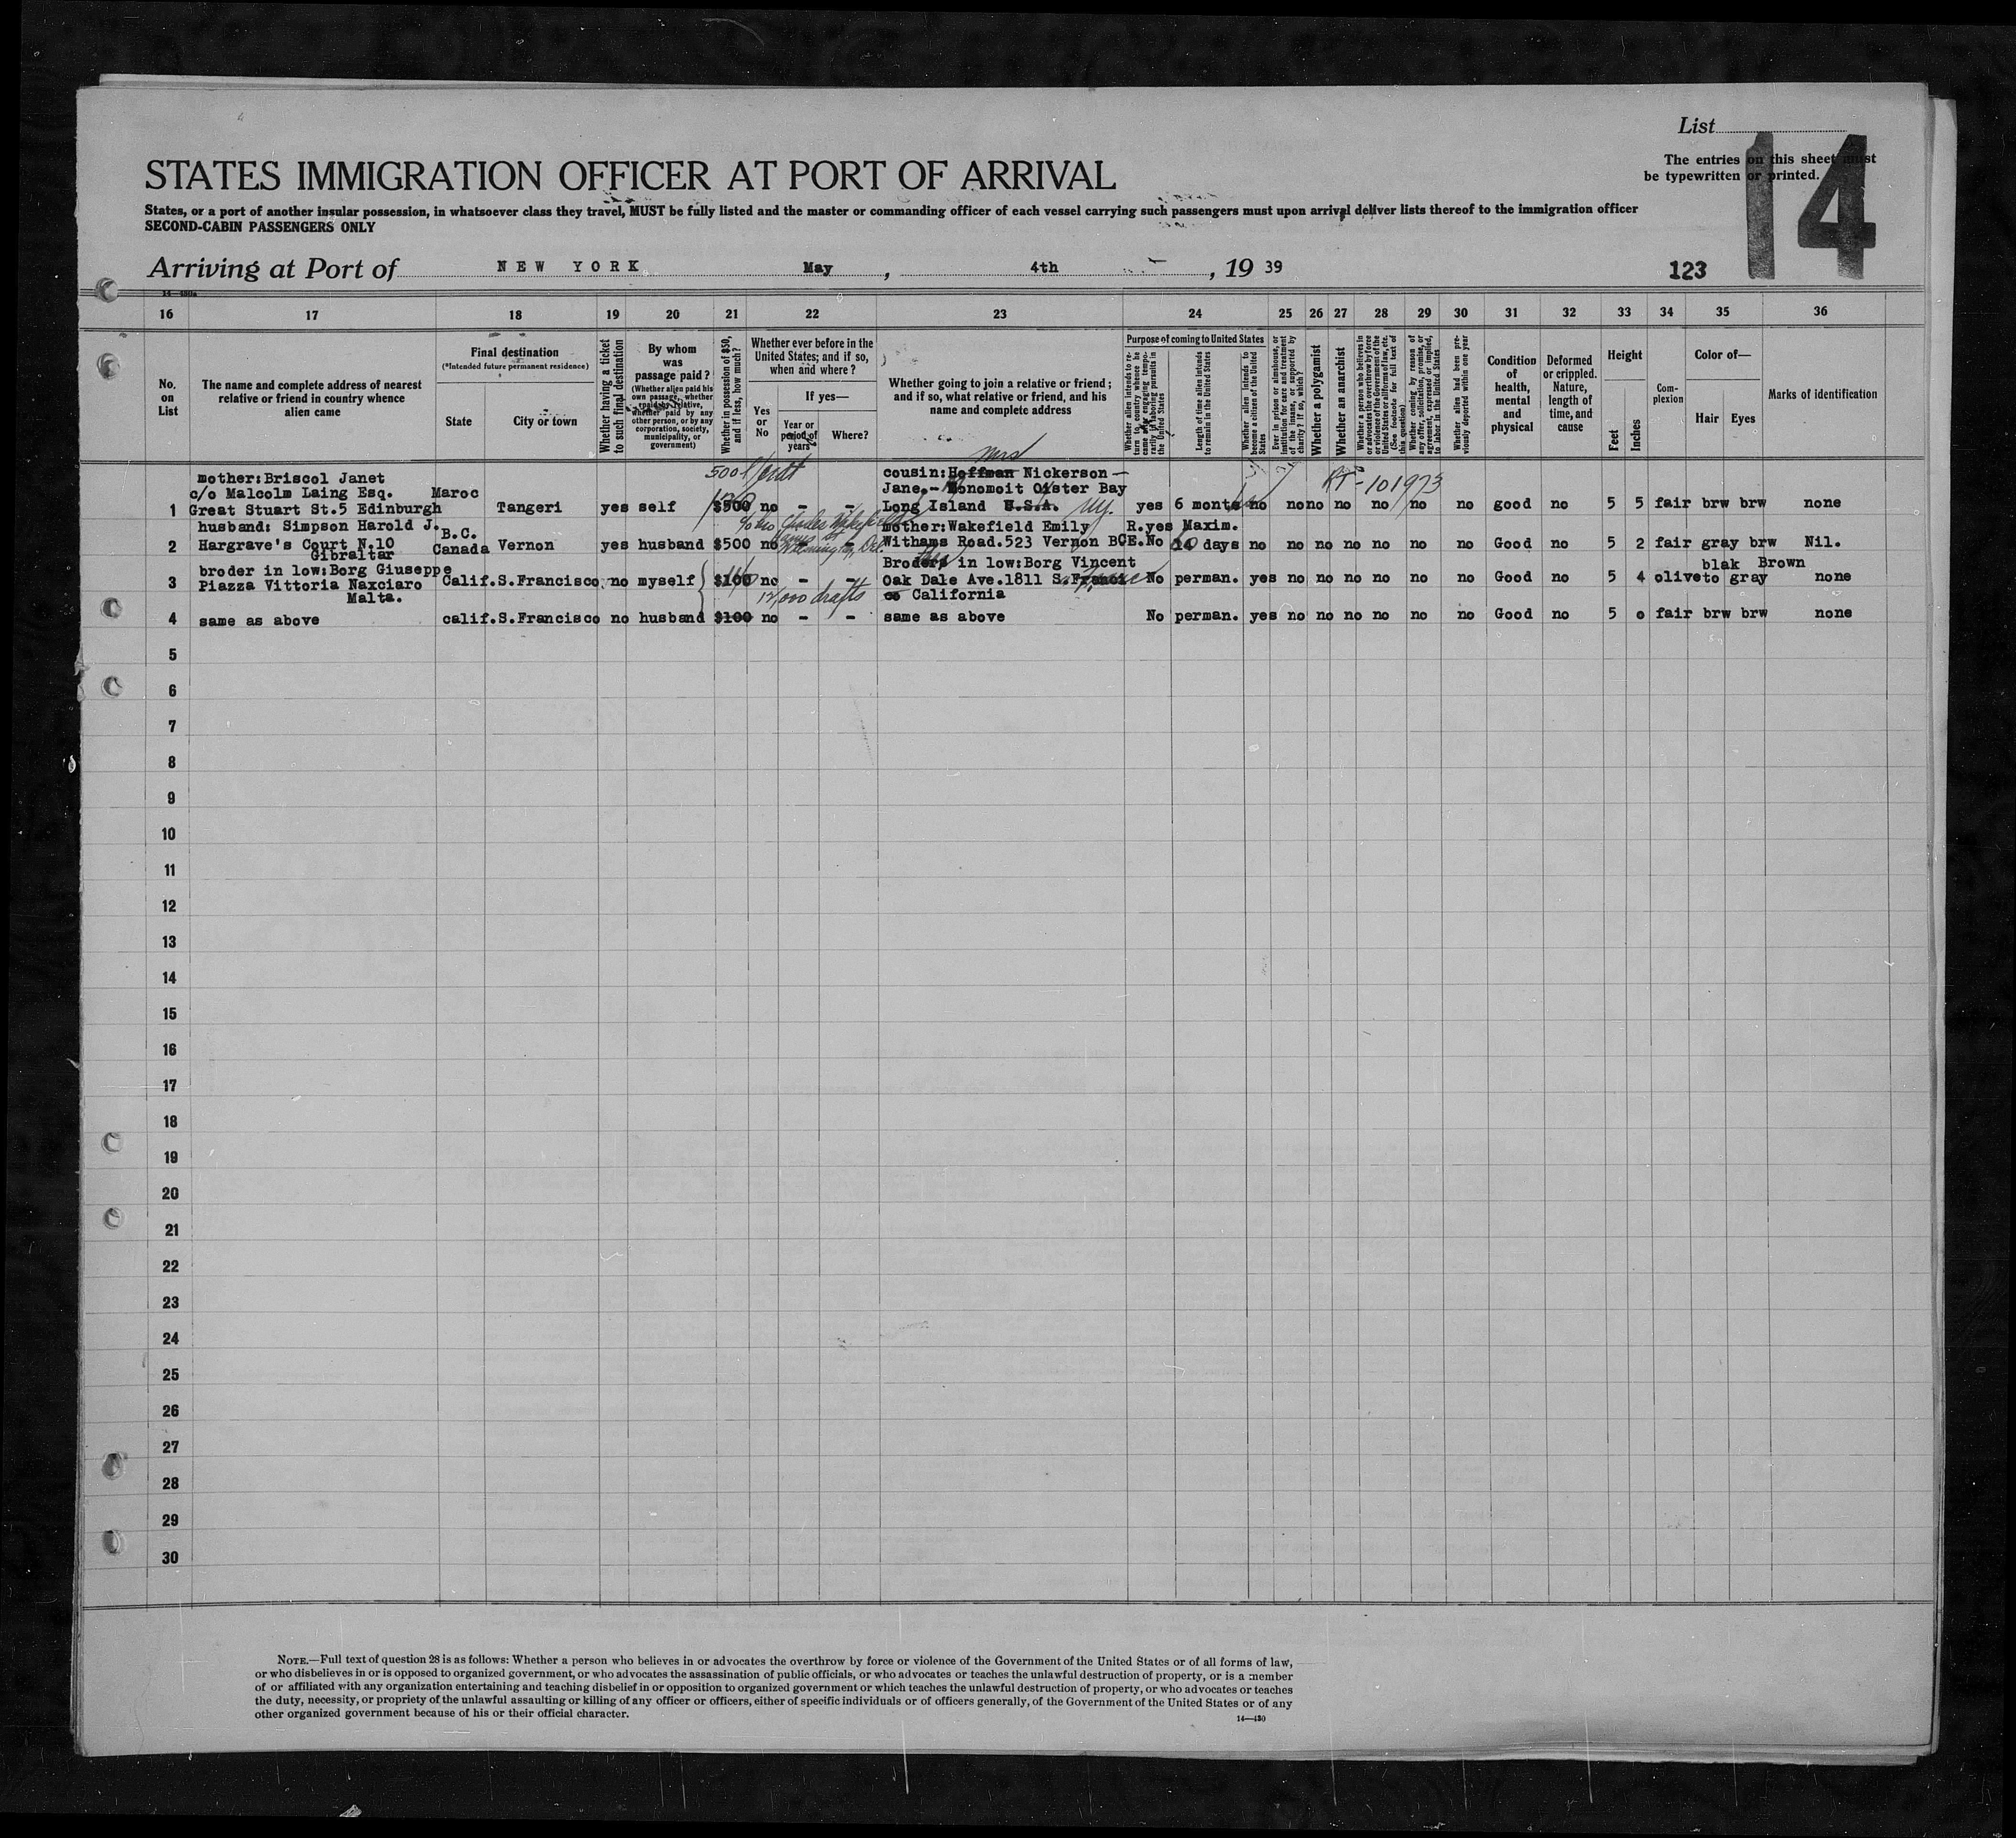 List
14
The entries on this sheet must
be typewritten or printed.
STATES IMMIGRATION OFFICER AT PORT OF ARRIVAL
States, or a port of another insular possession, in whatsoever class they travel, MUST be fully listed and the master or commanding officer of each vessel carrying such passengers must upon arrival deliver lists thereof to the immigration officer
SECOND-CABIN PASSENGERS ONLY
Arriving at Port of NEW YORK May , 4th , 19 39
123
14—430a
16 17 18 19 20 21 22 23 24 25 26 27 28 29 30 31 32 33 34 35 36
No. on List
The name and complete address of nearest relative or friend in country whence alien came
Final destination
(*Intended future permanent residence)
State
City or town
Whether having a ticket to such final destination
By whom was passage paid?
(Whether alien paid his own passage, whether paid by relative, whether paid by any other person, or by any corporation, society, municipality, or government)
Whether in possession of $50, and if less, how much?
Whether ever before in the United States; and if so, when and where?
Yes or No
If yes—
Year or period of years
Where?
Whether going to join a relative or friend; and if so, what relative or friend, and his name and complete address
Purpose of coming to United States
Whether alien intends to return to country whence he came after engaging temporarily in laboring pursuits in the United States
Length of time alien intends to remain in the United States
Whether alien intends to become a citizen of the United States
Ever in prison or almshouse, or institution for care and treatment of the insane, or supported by charity? If so, which?
Whether a polygamist
Whether an anarchist
Whether a person who believes in or advocates the overthrow by force or violence of the Government of the United States or all forms of law, etc. (See footnote for full text of this question)
Whether coming by reason of any offer, solicitation, promise, or agreement, expressed or implied, to labor in the United States
Whether alien had been previously deported within one year
Condition of health, mental and physical
Deformed or crippled. Nature, length of time, and cause
Height
Feet
Inches
Complexion
Color of—
Hair
Eyes
Marks of identification
mrs
mother:Briscol Janet 500 cousin:Hoffman Nickerson
c/o Malcolm Laing Esq. Maroc Jane.- Monomoit Oister Bay RT-101973
1 Great Stuart St.5 Edinburgh Tangeri yes self $500 no - - Long Island U.S.A. NY. yes 6 months no no no no no no no good no 5 5 fair brw brw none
husband: Simpson Harold J. B.C. mother:Wakefield Emily R.yes Maxim.
2 Hargrave's Court N.10 Canada Vernon yes husband $500 no - - Withams Road.523 Vernon BCE.No days no no no no no no no Good no 5 2 fair gray brw Nil.
Gibraltar
Wilmington, Del.
broder in low:Borg Giuseppe Broder in low:Borg Vincent blak Brown
3 Piazza Vittoria Naxciaro Calif. S.Francisco no myself $100 no - - Oak Dale Ave.1811 S.Franci No perman. yes no no no no no no Good no 5 4 oliveto gray none
Malta. 12,000 drafts co California
4 same as above calif. S.Francisco no husband $100 no - - same as above No perman. yes no no no no no no Good no 5 0 fair brw brw none
5
6
7
8
9
10
11
12
13
14
15
16
17
18
19
20
21
22
23
24
25
26
27
28
29
30
NOTE.—Full text of question 28 is as follows: Whether a person who believes in or advocates the overthrow by force or violence of the Government of the United States or of all forms of law,
or who disbelieves in or is opposed to organized government, or who advocates the assassination of public officials, or who advocates or teaches the unlawful destruction of property, or is a member
of or affiliated with any organization entertaining and teaching disbelief in or opposition to organized government or which teaches the unlawful destruction of property, or who advocates or teaches
the duty, necessity, or propriety of the unlawful assaulting or killing of any officer or officers, either of specific individuals or of officers generally, of the Government of the United States or of any
other organized government because of his or their official character.
14—430